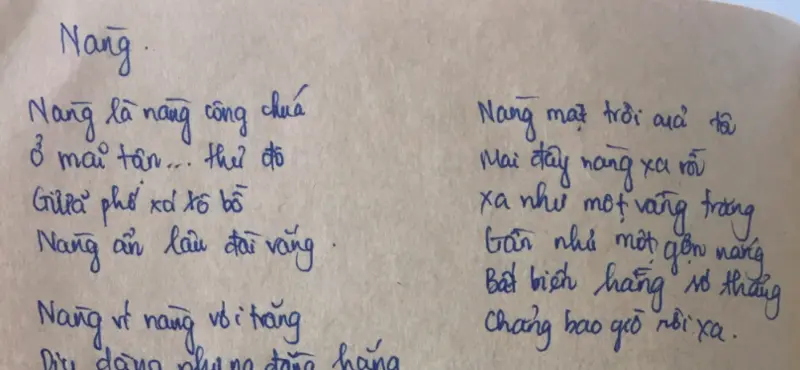 Nàng.
Nàng là nàng công chúa
Ở mãi tận... thủ đô
Giữa phố xá xô bồ
Nàng ẩn lâu đài vắng.
Nàng ví nàng với trăng
Dịu dàng nhưng đằng hắng
Nàng mặt trời của tôi
Mai đây nàng xa rồi
Xa như một vầng trăng
Gần như một gợn nắng
Bất biến hằng số thẳng
Chẳng bao giờ rời xa.